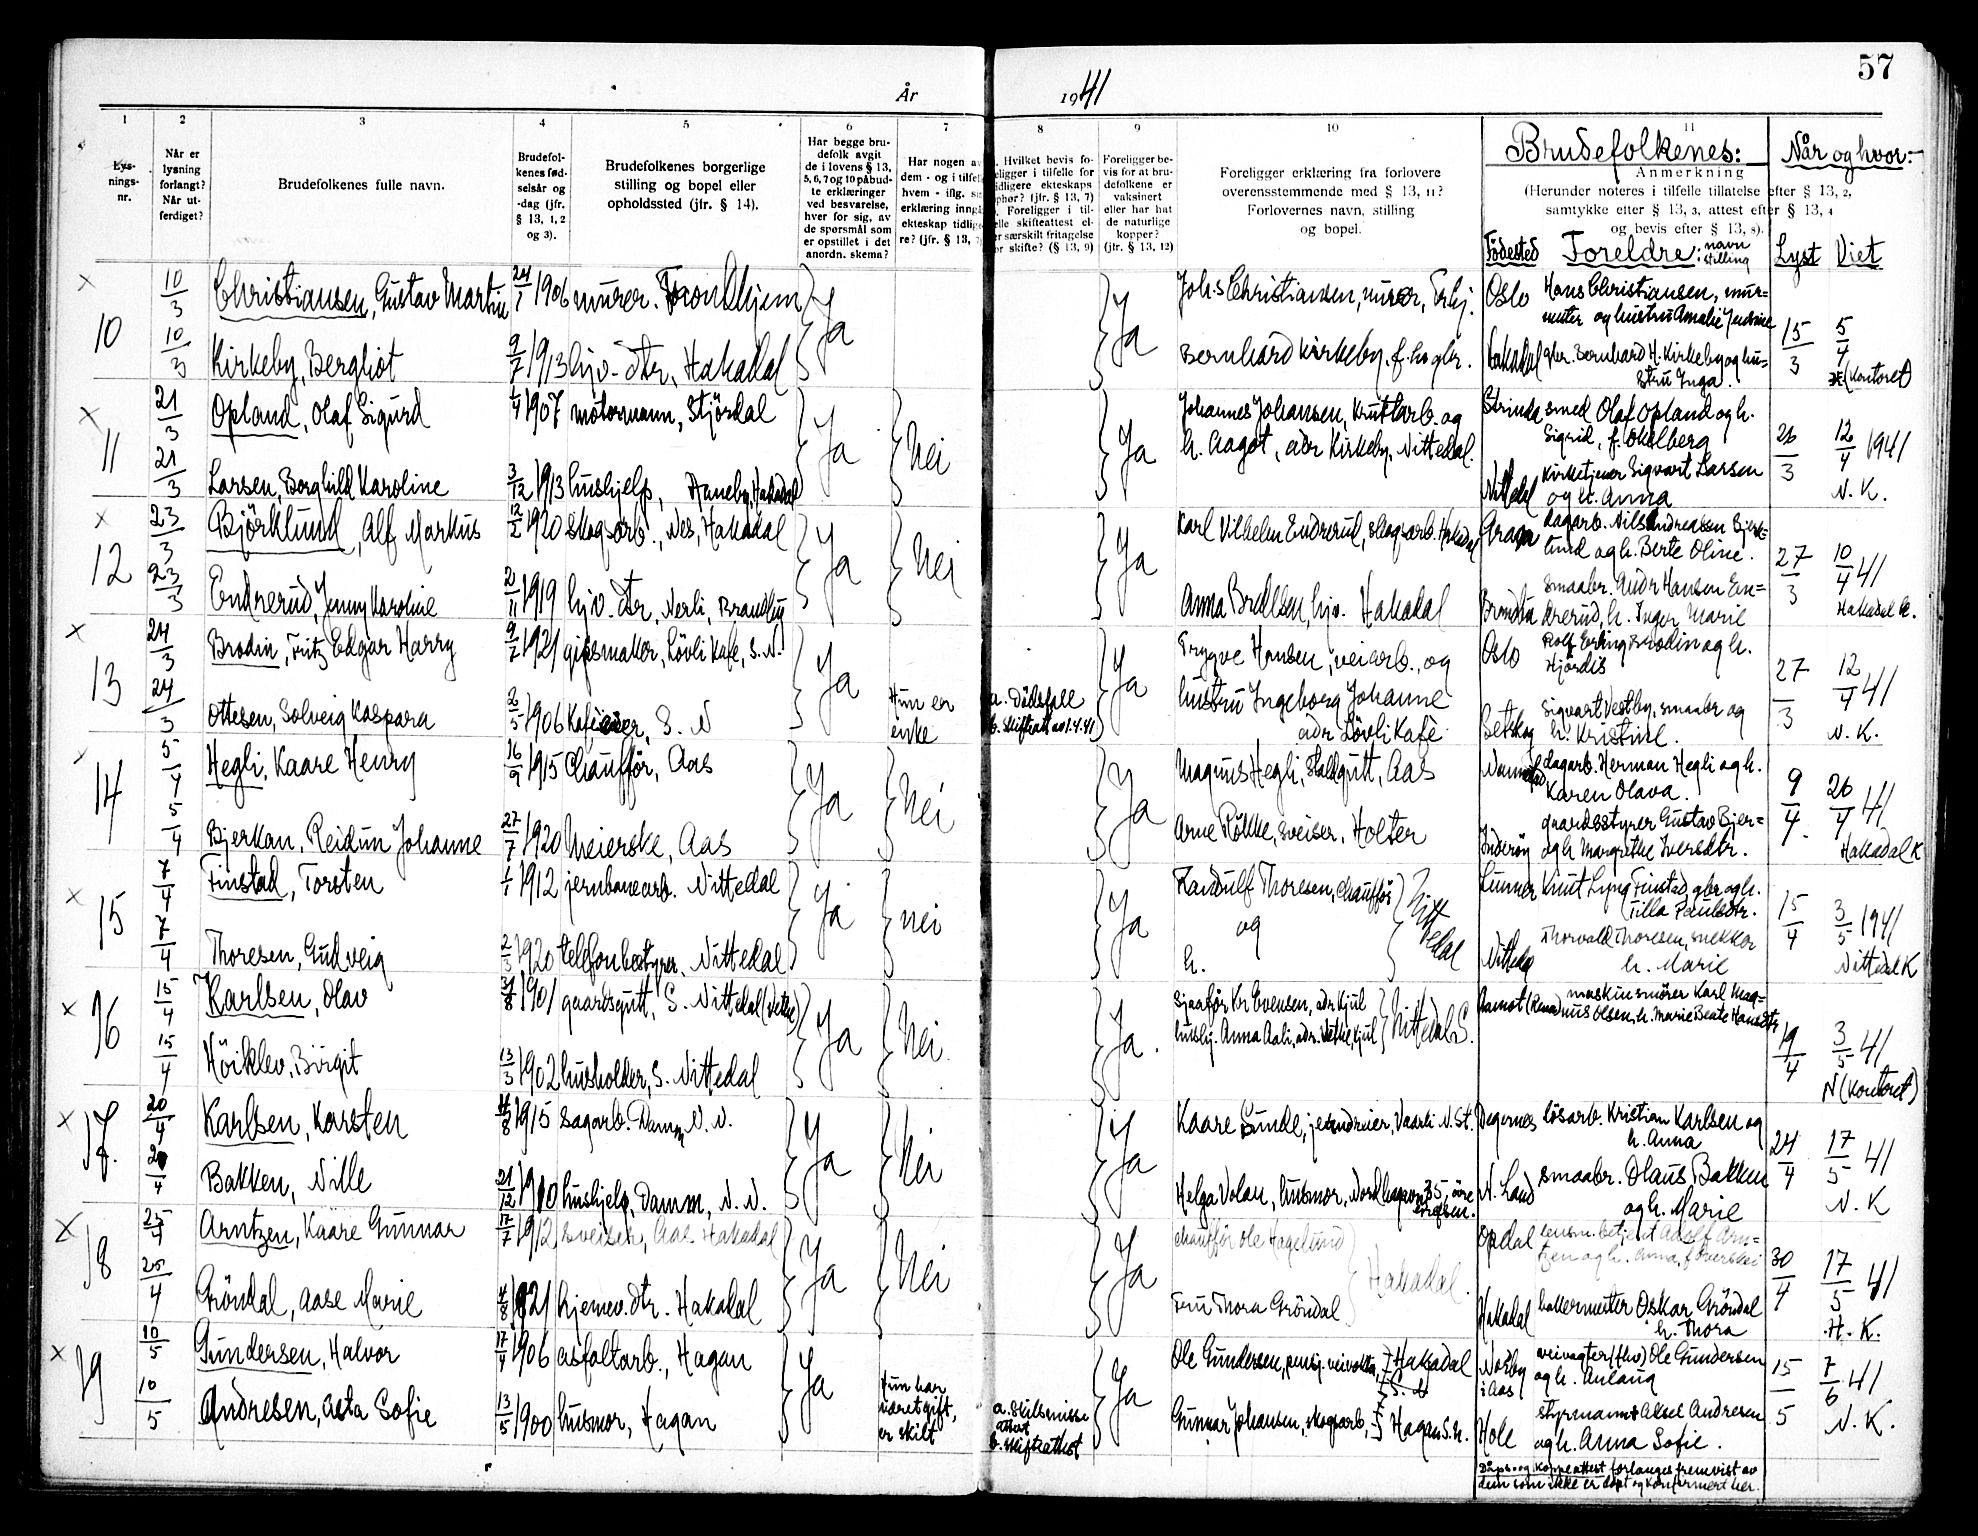 57
År 1941
1 2 3 4 5 6 7 8 9 10 11
Lysnings-
nr.
Når er
lysning
forlangt?
Når ut-
ferdiget?
Brudefolkenes fulle navn.
Brudefol-
kenes fød-
selsår og
-dag (jfr.
§ 13, 1, 2
og 3).
Brudefolkenes borgerlige
stilling og bopel eller
opholdssted (jfr. § 14).
Har begge bru-
defolk avgit
de i lovens § 13,
5, 6, 7 og 10 påbud-
te erklæringer
ved besvarelse,
hver for sig, av
de spørsmål som
er opstillet i det
anordn. skema?
Har nogen av
dem - og i tilfelle
hvem - iflg.
erklæring inngå
ekteskap tidlige-
re? (jfr. § 13,
Hvilket bevis fo-
religger i tilfelle for
tidligere ekteskaps
ophør? (jfr. § 13, 7)
Foreligger i til-
felle skifteattest el-
er særskilt fritagelse
for skifte? (§ 13, 9)
Foreligger be-
vis for at bru-
defolkene er
vaksinert
eller har hat
de naturlige
kopper?
(jfr. § 13, 12)
Foreligger erklæring fra forlovere
overensstemmende med § 13, 11?
Forlovernes navn, stilling
og bopel.
Brudefolkenes:
Anmerkning
(Herunder noteres i tilfelle tillatelse efter § 13, 2,
samtykke efter § 13, 3, attest efter § 13, 4
og bevis efter § 13, 8).
Fødested Foreldre: navn stilling
Når og hvor:-
Lyst Viet
x 10 10/3 Christiansen, Gustav Martin 24/1 1906 murer. Trondhjem Ja Ja Johs Christiansen, murer, Oslo Hans Christiansen, mur=
mester og hustru Amalie
10/3 Kirkeby, Bergliot 9/7 1913 hjv-dtr, Hakadal Bernhard Kirkeby, f.h. gbr. Hakadal gbr. Bernhard H. Kirkeby og hu=
stru Inga. 15/3 5/4 (Kontoret
x 11 21/3 Opland, Olaf Sigurd 1/4 1907 motormann, Stjördal Ja Nei Ja Johannes Johansen, Kruttarb. og Strinda smed Olaf Opland og h.
h. Aagot, adr Kirkeby, Nittedal. Sigrid, f. 26/3 12/4 1941
21/3 Larsen, Borghild Karoline 3/12 1913 hushjelp, Haneby, Hakadal Nittedal Kirketjener Sigvart Larsen
og h. Anna N. K.
x 12 23/3 Björklund, Alf Markus 12/2 1920 skogsarb., Nes, Hakadal Ja Nei Ja Karl Vilhelm Endrerud, skogsarb. Hakadal Gran dagarb. Nils Andreassen Bjørk-
lund og h. Berte Oline. 27/3 10/4 41
23/3 Endrerud, Jenny Karoline 2/11 1919 hjv. dtr, Nerli, Brandbu Anna hjv. Hakadal Brandbu smaabr. Andr Hansen En=
drerud, h. Inger Marie Hakadal K.
x 13 24/3 Brodin, Fritz Edgar Harry 9/7 1921 gipsmaker, Lövli Kafe, S. N. Ja Ja Trygve Hansen, veiarb., og Oslo Rolf Erling Brodin og h.
Hjördis 27/3 12/4 41
24/3 Ottesen, Solveig Kaspara 1906 Kafeeier, S. N Hun er
enke a. Dödsfall
b. Skifteatt av 1.4.41 hustru Ingeborg Johanne
adr Lövli Kafé Setskog Sigvart Vestby, smaabr og
h. Kristine. N. K.
14 5/4 Hegli, Kaare Henry 16/9 1915 Chauffør, Aas Ja Nei Ja Magnus Hegli, Stallgutt, Aas dagarb. Herman Hegli og h.
Karen Olava. 9/4 26/4 41
5/4 Bjerkan, Reidun Johanne 27/7 1920 Meierske, Aas Arne Rökke, sveiser, Holter Inderöy gaardsstyrer Gustav Bjer=
og h Margrethe Iversdtr. Hakadal K
x 15 7/4 Finstad, Torsten 1/1 1912 jernbanearb. Nittedal Ja nei Ja Randulf Thoresen, Chauffør Lunner Knut Lyng Finstad, gbr og h.
og Nittedal Tilla Paulsdtr. 15/4 3/5 1941
7/4 Thoresen, Gudveig 2/3 1920 telefonbestyrer, Nittedal h. Nittedal Thorvald Thoresen, snekker
h. Marie Nittedal K
x 16 15/4 Karlsen, Olav 31/8 1901 gaardsgutt, S. Nittedal Ja Nei. Ja. Sjaafør Kr Evensen, adr Kjul Aamot (Rena) maskinsmører Karl Mag=
nus Olsen, h. Marie Beate Hansdtr
15/4 Höiklev, Birgit 13/3 1902 husholder, S. Nittedal hushj. Anna Aali, adr. Kjul Nittedal S. 19/4 3/5 41
N (Kontoret)
x 17. 20/4 Karlsen, Karsten 1915 sagarb. Damm N. N. Ja Nei Ja Kaare Sunde, Vaarli N. St. Degernes lösarb. Kristian Karlsen og
h. Anna 24/4 17/5 41
20/4 Bakken, Nille 21/12 1910 hushjelp, Damm, N. N. Helga Volan, husmor, 35, N. Land smaabr. Olaus Bakken
og h. Marie N. K
x 18 25/4 Arntzen, Kaare Gunnar 17/7 1912 sveiser, Aas Hakadal Ja Nei Ja chauffør Ole Hagelund Hakadal. Opdal lensm. betjent Adolf Arn=
tzen og h. Anna, 30/4 17/5 41
25/4 Gröndal, Aase Marie 4/8 1921 hjemev. dtr. Hakadal Fru Thora Gröndal Hakadal bakermester Oskar Gröndal
h. Thora H. K.
x 19 10/5 Gundersen, Halvor 17/4 1906 asfaltarb., Hagan Ja Ja Ole Gundersen, pensj. veivokter, Hakadal Nordby
i Aas veivogter (fhv) Ole Gundersen
og h. Anlaug 15/5 7/6 41
10/5 Andresen, Asta Sofie 13/5 1900 husmor, Hagan Hun har
været gift,
er skilt a. Skilsmisse
attest
b. skifteattest Gunnar Johansen, skogsarb, Hagan S. N. Hole styrmann Aksel Andresen
og h. Anna Sofie. N. K.
Dåps- og koppeattest forlanges fremvist av
dem som ikke er döpt og konfirmert her.